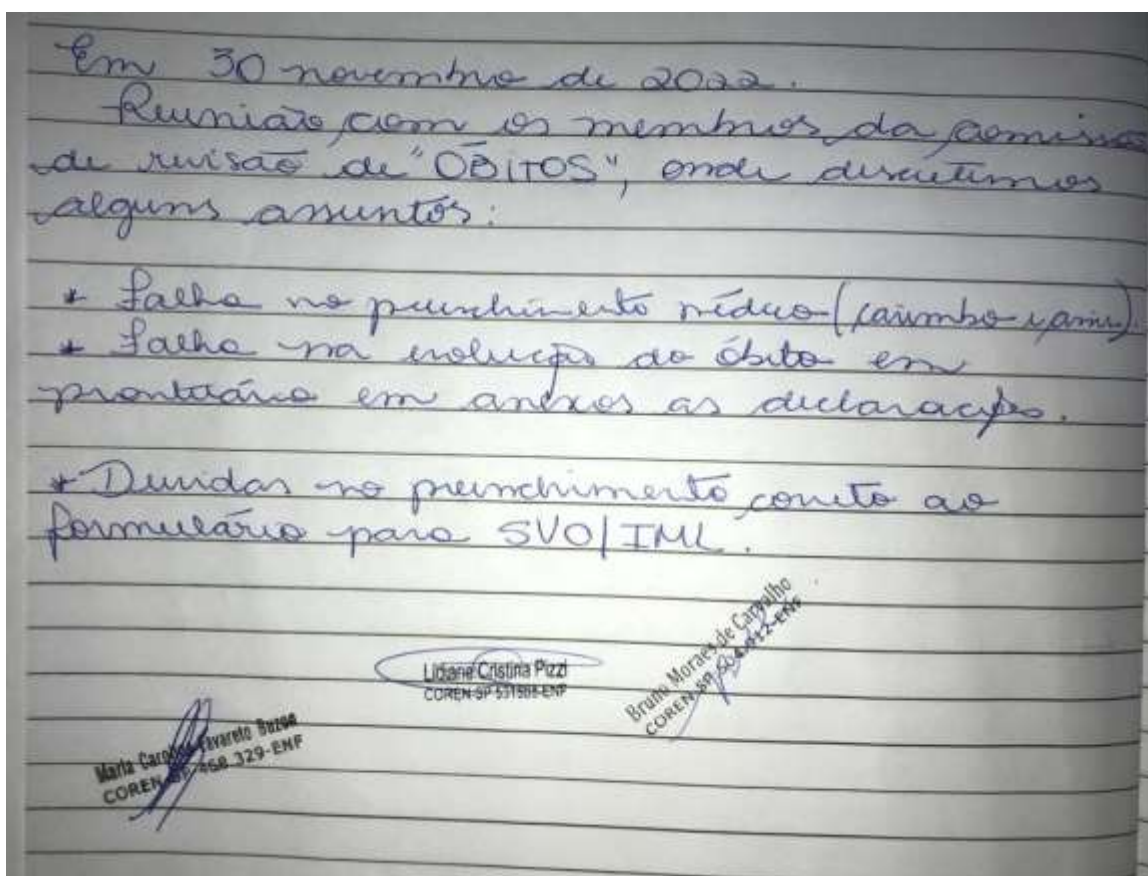 Em 30 novembro de 2022.
Reunião com os membros da comissão
de revisão de "ÓBITOS", onde discutimos
alguns assuntos:
* Falha no preenchimento médico (carimbo e
* Falha na evolução do óbito em
prontuário em anexos as declarações.
* Duvidas no preenchimento correto ao
formulário para SVO/IML.
Bruno Moraes de Carvalho
COREN-SP
Lidiane Cristina Pizzi
COREN-SP
Maria
COREN-SP 468.329-ENF